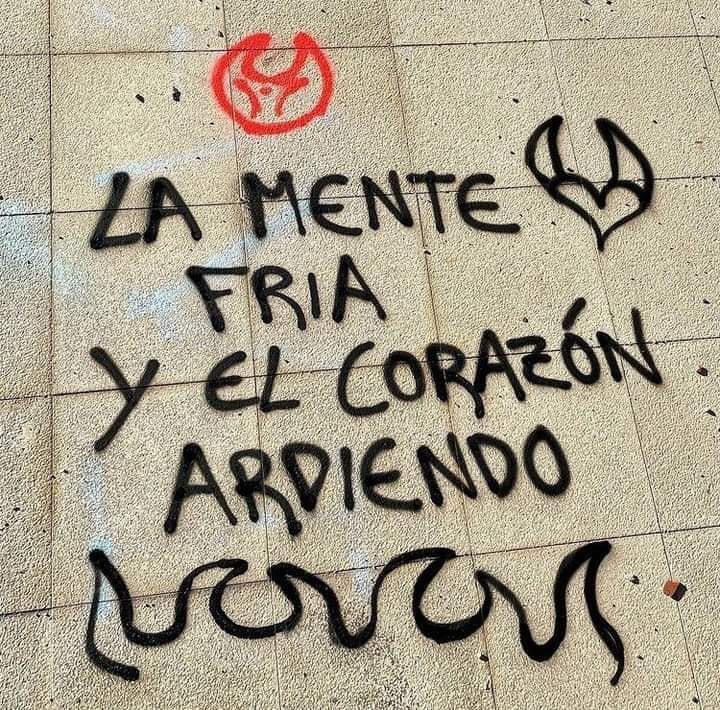 LA MENTE
FRIA
Y EL CORAZÓN
ARDIENDO